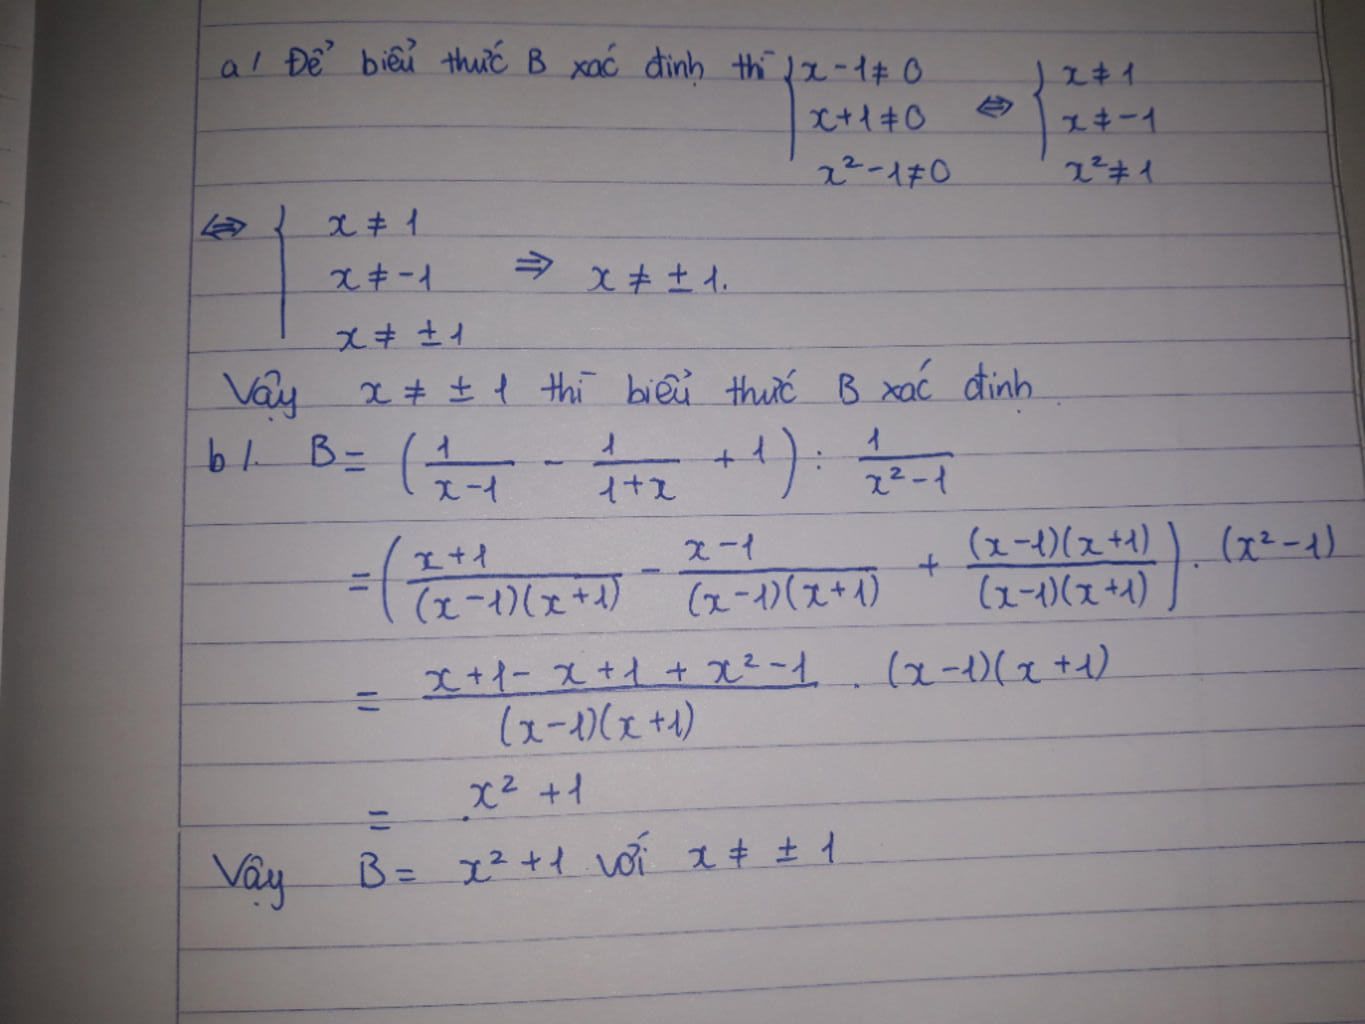 a/ Để biểu thức B xác định thì { x - 1 ≠ 0 ; x + 1 ≠ 0 ; x² - 1 ≠ 0 ⇔ { x ≠ 1 ; x ≠ -1 ; x² ≠ 1
⇔ { x ≠ 1 ; x ≠ -1 ; x ≠ ± 1 ⇒ x ≠ ± 1.
Vậy x ≠ ± 1 thì biểu thức B xác định.
b/. B = (1/(x-1) - 1/(1+x) + 1) : 1/(x² - 1)
= ((x+1)/((x-1)(x+1)) - (x-1)/((x-1)(x+1)) + ((x-1)(x+1))/((x-1)(x+1))) . (x² - 1)
= (x+1 - x+1 + x² - 1)/((x-1)(x+1)) . (x-1)(x+1)
= x² + 1
Vậy B = x² + 1 với x ≠ ± 1